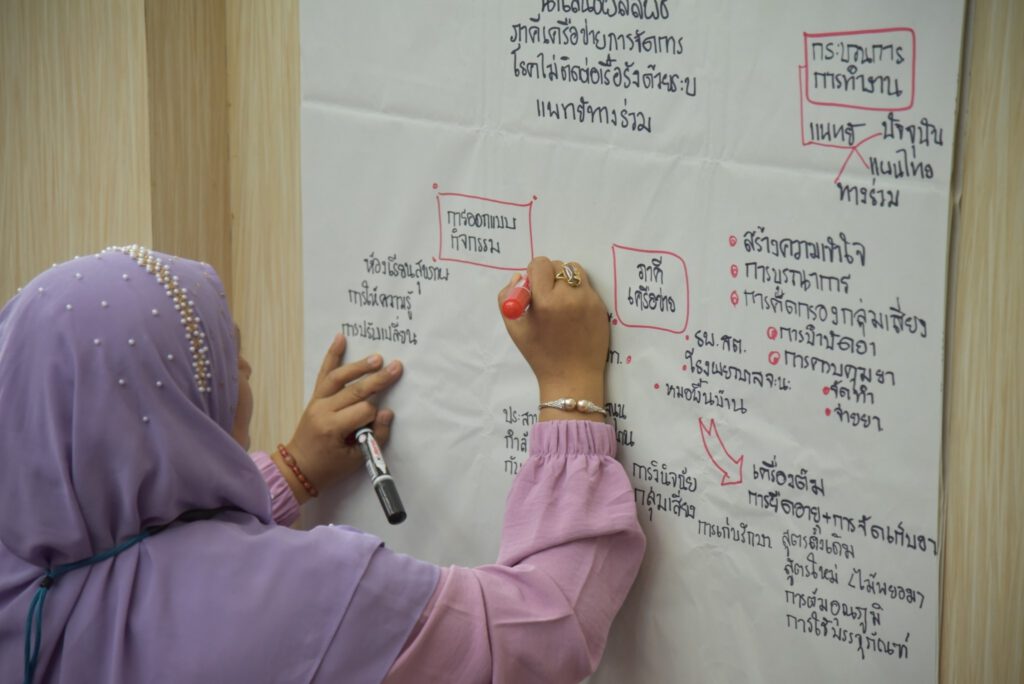 ภาคีเครือข่ายการจัดการ
โรคไม่ติดต่อเรื้อรังด้วยระบ
แพทย์ทางร่วม
กระบวนการ
การทำงาน
แพทย์
ปัจจุบัน
แผนไทย
ทางร่วม
การออกแบบ
กิจกรรม
ห้องเรียนสุขภาพ
การให้ความรู้
การปรับเปลี่ยน
ภาคี
เครือข่าย
ท.
รพ.สต.
โรงพยาบาลจะนะ
หมอพื้นบ้าน
สร้างความเข้าใจ
การบูรณาการ
การคัดกรองกลุ่มเสี่ยง
การบำบัดยา
การควบคุมยา
จัดหา
จ่ายยา
การวินิจฉัย
กลุ่มเสี่ยง
การเก่บรักษา
เครื่องดื่ม
การยืดอายุ+การจัดเก็บยา
สูตรดั้งเดิม
สูตรใหม่
การต้มอุณภูมิ
การใช้บรรจุภัณฑ์